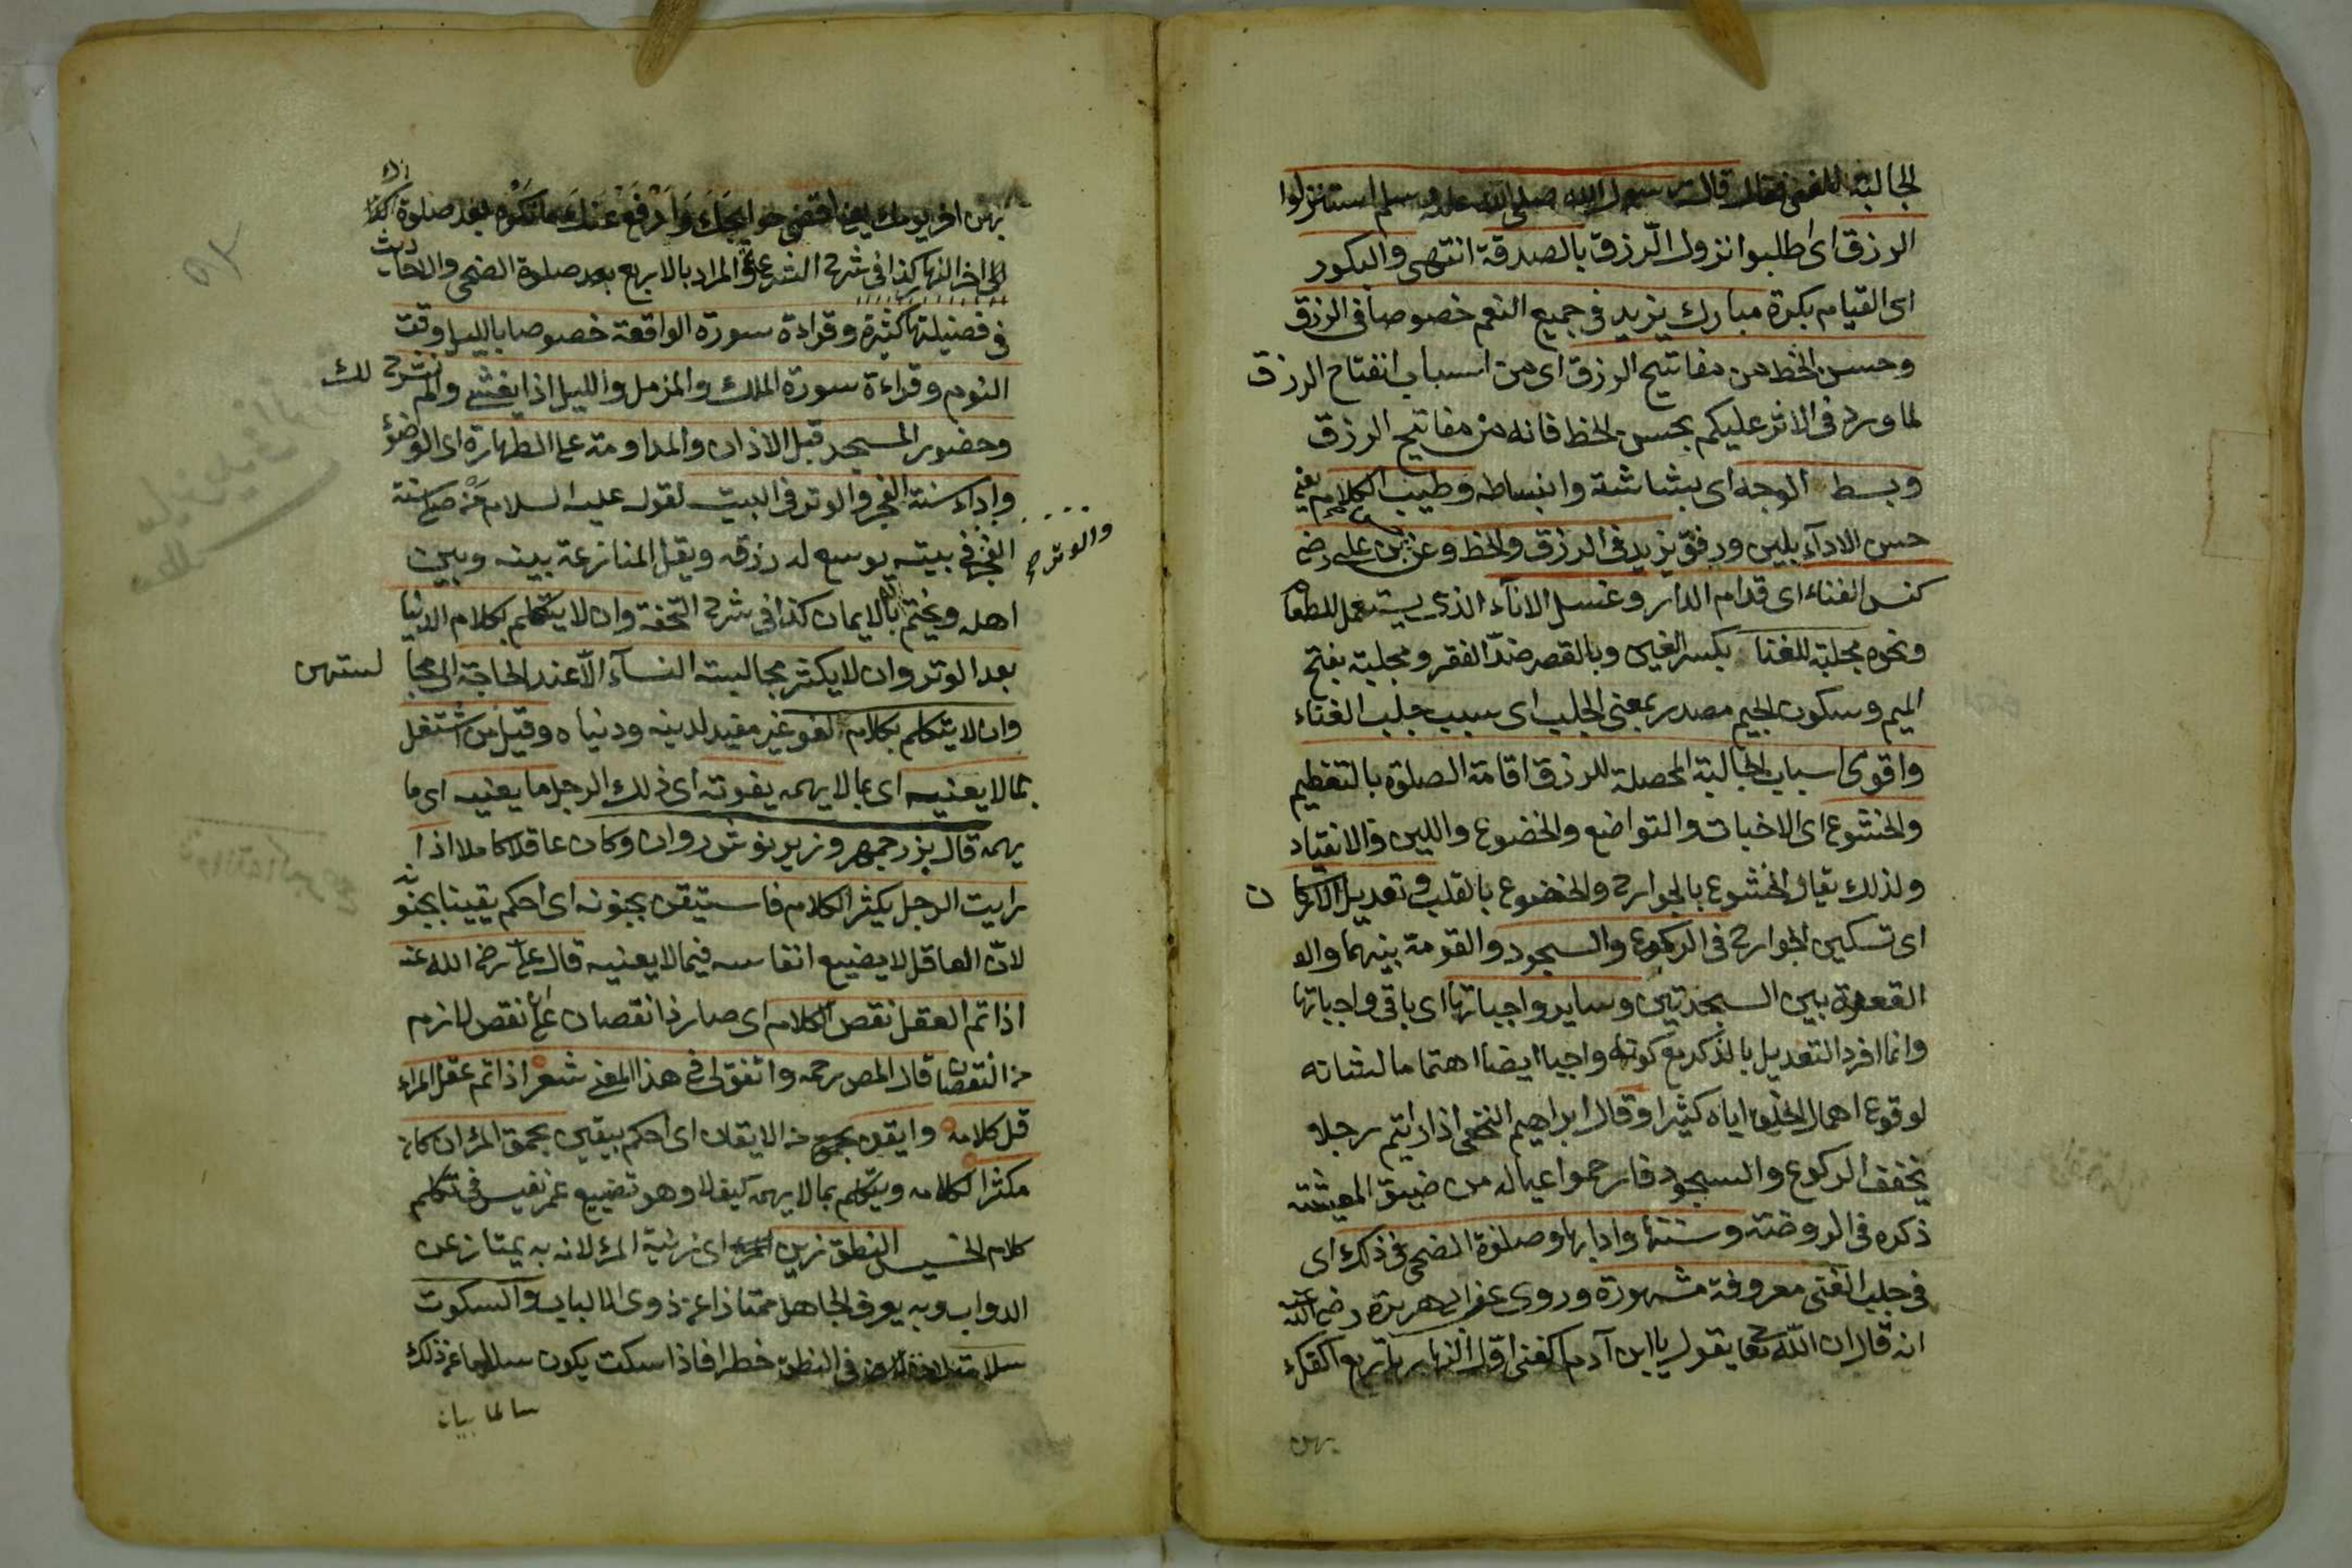 الجالبة للغنى فقال قال رسول الله صلى الله عليه وسلم استنزلوا
الرزق اى اطلبوا نزول الرزق بالصدقة انتهى والبكور
اى القيام بكرة مبارك يزيد فى جميع النعم خصوصا فى الرزق
وحسن الخط من مفاتيح الرزق اى من اسباب انفتاح الرزق
لما ورد فى الاثر عليكم بحسن الخط فانه من مفاتيح الرزق
وبسط الوجه اى بشاشة وانبساطه وطيب الكلام يعنى
حسن الادآء بلين ورفق يزيد فى الرزق والحظ وعن حسن بن على رضى
كنس الفناء اى قدام الدار وغسل الانآء الذى يستعمل للطعام
ونحوه مجلبة للغنا بكسر الغين وبالقصر ضدّ الفقر ومجلبة بفتح
الميم وسكون الجيم مصدر بمعنى الجلب اى سبب جلب الغناء
واقوى اسباب الجالبة المحصلة للرزق اقامة الصلوة بالتعظيم
والخشوع اى الاخبات والتواضع والخضوع واللين والانقياد
ولذلك يقال الخشوع بالجوارح والخضوع بالقلب وتعديل الاركان
اى تسكين الجوارح فى الركوع والسجود والقومة بينهما والـ
القعدة بين السجدتين وساير واجباتها اى باقى واجباتها
وانما افرد التعديل بالذكر مع كونه واجبا ايضا اهتماما لشانه
لوقوع اهمال الخلق اياه كثيرا وقال ابراهيم النخعى اذا رايتم رجلا
يخفف الركوع والسجود فارحموا عياله من ضيق المعيشة
ذكره فى الروضة وسننها وادابها وصلوة الضحى فى ذلك اى
فى جلب الغنى معروفة مشهورة وروى عن ابى هريرة رضى الله عنه
انه قال ان الله تعا يقول يا ابن آدم اكفنى اول النهار باربع اكفك
بهن
بهن اخر يومك يعنى اقضى حوايجك وادفع عنك ما تكره بعد صلوة
الى اخر النهار كذا فى شرح الشرعة والمراد بالاربع بعد صلوة الضحى والاحاديث
فى فضيلتها كثيرة وقراءة سورة الواقعة خصوصا بالليل وقت
النوم وقراءة سورة الملك والمزمل والليل اذا يغشى والم نشرح لك
وحضور المسجد قبل الاذان والمداومة على الطهارة اى الوضوء
واداء سنة الفجر والوتر فى البيت لقوله عليه السلام من صلى سنة
الفجر فى بيته يوسع له رزقه ويقل المنازعة بينه وبين
والوتر صح
اهله ويختم بالايمان كذا فى شرح التحفة وان لا يتكلم بكلام الدنيا
بعد الوتر وان لا يكثر مجالسة النسآء الّا عند الحاجة الى مجا لستهن
وان لا يتكلم بكلام لغو غير مفيد لدينه ودنياه وقيل من اشتغل
بما لا يعنيه اى بما لا يهمه يفوته اى ذلك الرجل ما يعنيه اى ما
يهمه قال بزرجمهر وزير نوشروان وكان عاقلا كاملا اذا
رايت الرجل يكثر الكلام فاستيقن بجنونه اى احكم يقينا بجنونه
لانّ العاقل لا يضيع انفاسه فيما لا يعنيه قال على رضى الله عنه
اذا تم العقل نقص الكلام اى صار ذا نقصان على ان نقص لازم
من النقصان قال المص رحمه واتفق لى فى هذا المعنى شعر اذا تم عقل المرء
قل كلامه وايقن بحمق من الايقان اى احكم بيقين بحمق المرء ان كان
مكثرا كلامه ويتكلم بما لا يهمه كيف لا وهو تضييع عمر نفيس فى تكلم
كلام الخسيس النطق زين اى زينة المرء لانه به يمتاز عن
الدواب وبه يعرف الجاهل ممتازا عن ذوى الالباب والسكوت
سلامة لان فى النطق خطرا فاذا سكت يكون سالما عن ذلك
سالما بيان